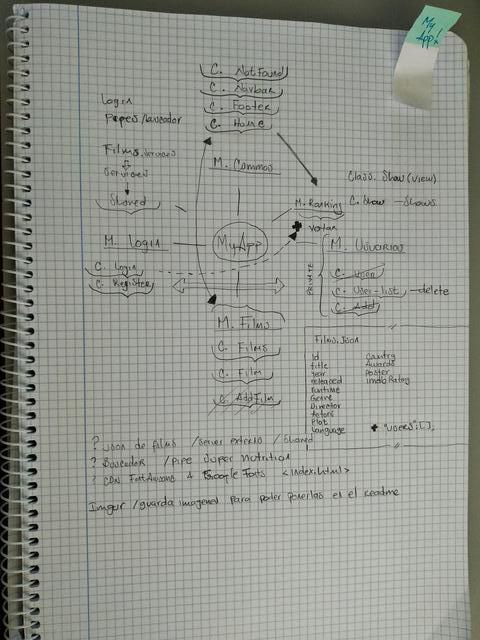 My
App!
C. NotFound
C. Navbar
C. Footer
C. Home
M. Common
Login
Pipes/buscador
Films.services
Services
Shared
M. Login
C. Login
C. Register
MyApp
Class. Show (view)
C. Show — Shows
M. Ranking
+ votar
M. Usuarios
C. User
C. User-list — delete
C. Add
M. Films
C. Films
C. Film
C. AddFilm
Films.Json
id
title
year
released
runtime
Genre
Director
Actors
Plot
Language
Country
Awards
Poster
imdbRating
+ "users": [],
? Json de films / server externo / Shared
? Buscador / pipe Super Nutrition
? CDN FontAwesome + Google Fonts <index.html>
Imgur / guarda imagenes para poder ponerlas en el readme